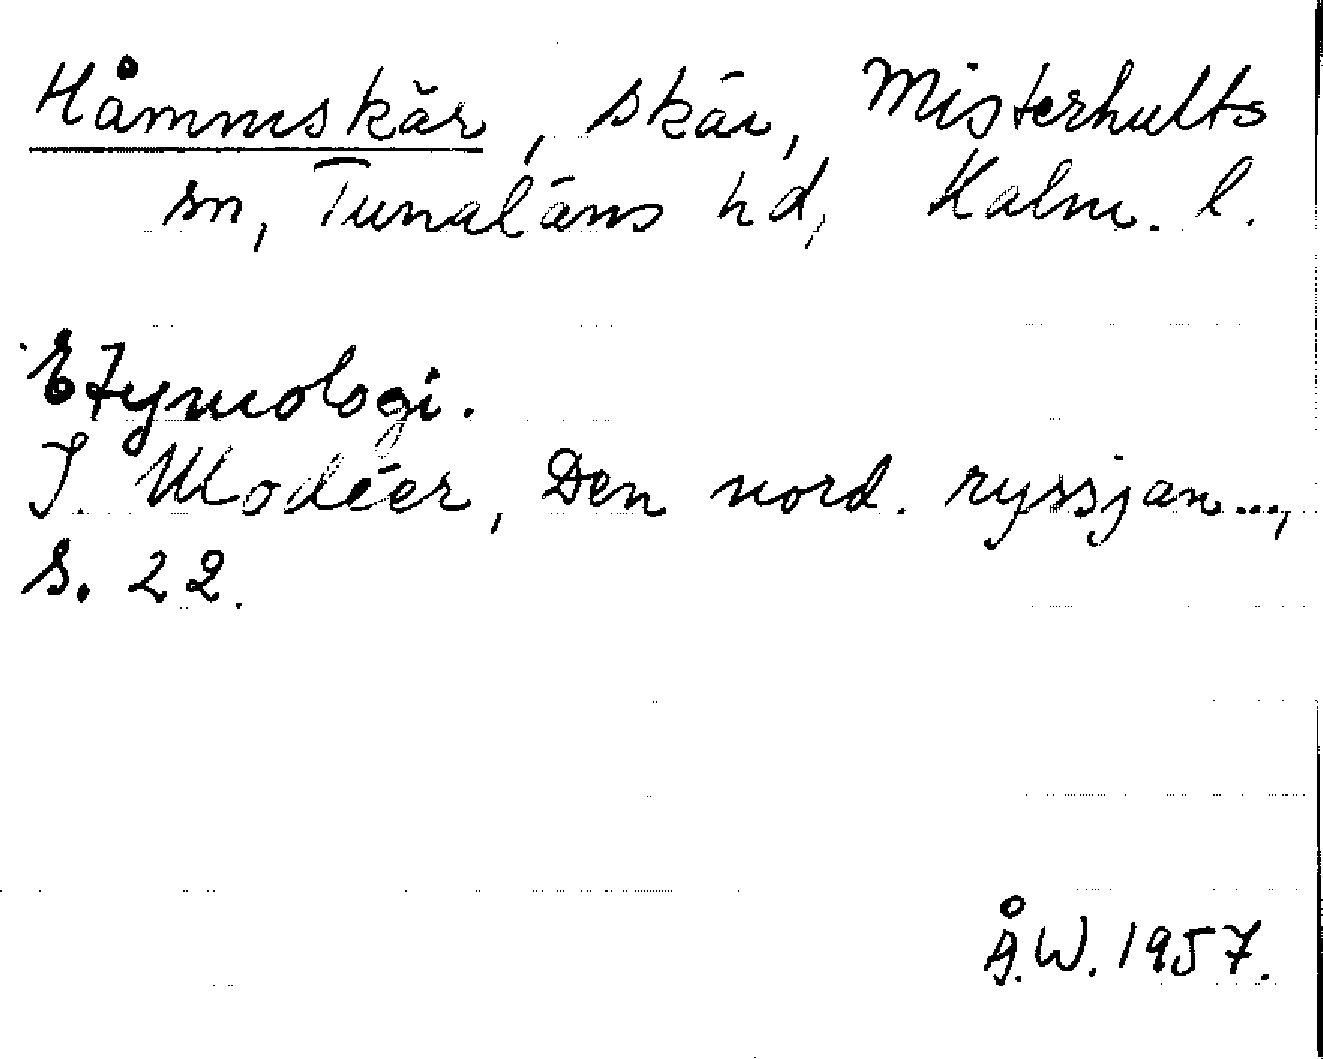 Håmmskär, skär, Misterhults
sn, Tunaläns hd, Kalm. l.
Etymologi.
I. Modéer, Den nord. ryssjan...,
s. 22.
Å.W. 1957.